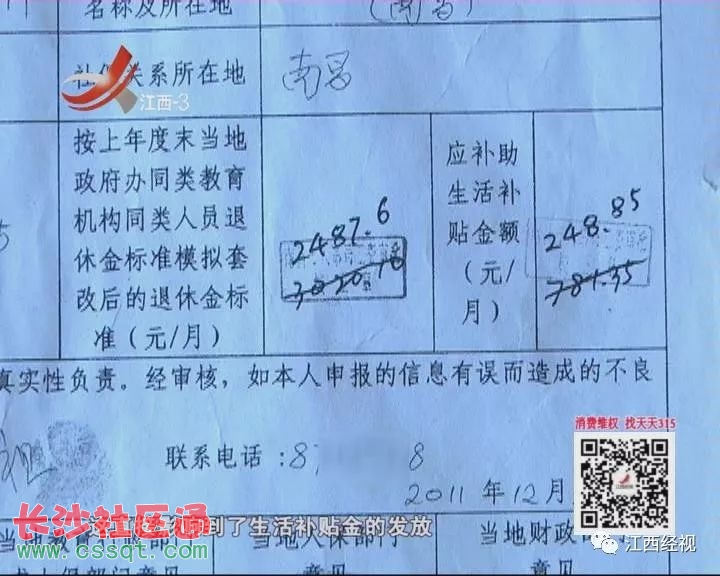 名称及所在地
(南昌)
社保关系所在地
南昌
江西-3
按上年度末当地
政府办同类教育
机构同类人员退
休金标准模拟套
改后的退休金标
准（元/月）
2487.6
3020.10
应补助
生活补
贴金额
（元/
月）
248.85
781.35
真实性负责。经审核，如本人申报的信息有误而造成的不良
消费维权 找天天315
联系电话：8 8
2011 年 12月
到了生活补贴金的发放
长沙社区通
www.cssqt.com
当地教育
当地人保部门
当地财政
意见
意见
江西经视